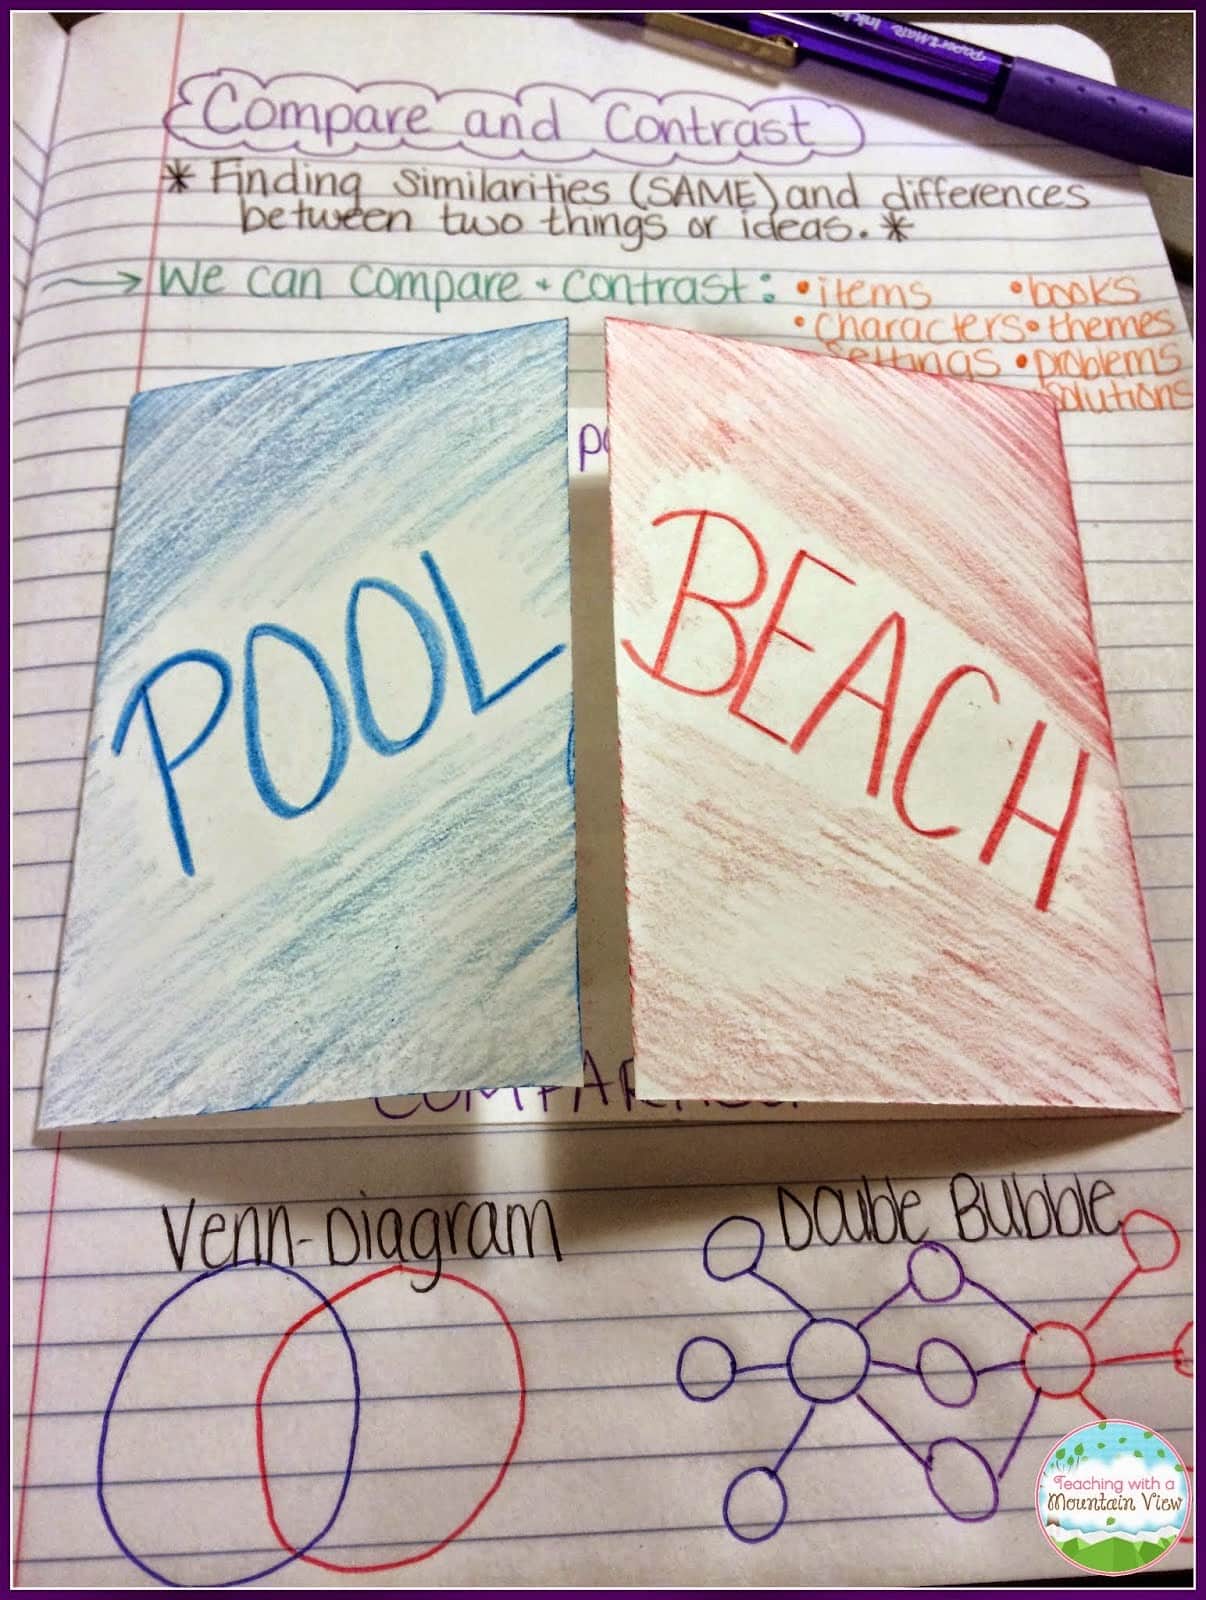 Ink Joy PaperMate
Compare and Contrast
* Finding similarities (SAME) and differences
between two things or ideas. *
→ We can compare + contrast: • items • books
• characters • themes
settings • problems
solutions
POOL
BEACH
Venn-Diagram
Double Bubble
Teaching with a
Mountain View